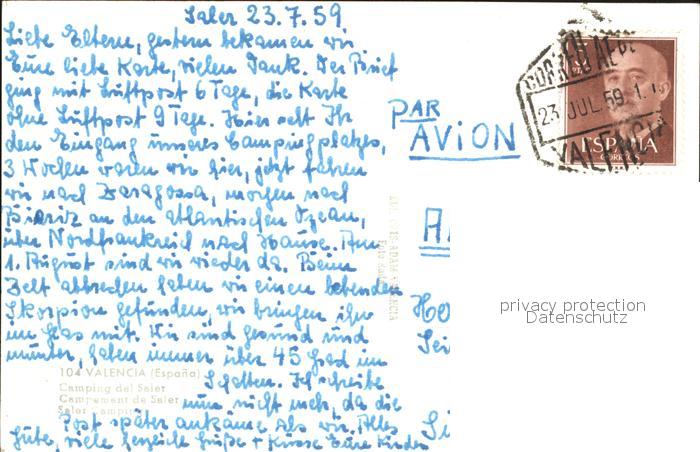 Saler 23.7.59
Liebe Eltern, gestern bekamen wir
Eure liebe Karte, vielen Dank. Der Brief
ging mit Luftpost 6 Tage, die Karte
ohne Luftpost 9 Tage. Hier seht Ihr
den Eingang unseres Campingplatzes,
3 Wochen waren wir hier, jetzt fahren
wir nach Zaragossa, morgen nach
Biariz an den atlantischen Ozean,
über Nordfrankreich nach Hause. Am
1. August sind wir wieder da. Beim
Zelt abbrechen haben wir einen lebenden
Skorpion gefunden, wir bringen ihn
im Glas mit. Wir sind gesund und
munter, haben immer über 45 Grad im
Schatten. Ich schreibe
nun nicht mehr, da die
Post später ankäme als wir. Alles
Gute, viele herzliche Grüße + Küsse Eure Kinder
104 VALENCIA (España)
Camping del Saler
Campement de Saler
Saler Camping
PAR
AVION
CORREO AEREO
23 JUL 59
VALENCIA
ESPAÑA
CORREOS
privacy protection
Datenschutz